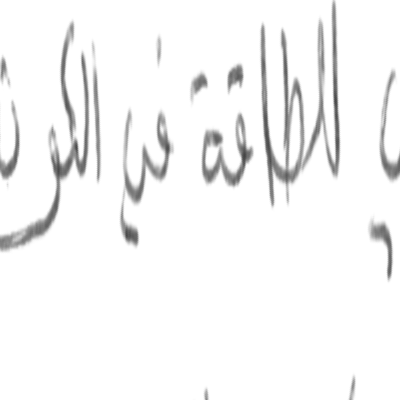 للطاقة في الكون